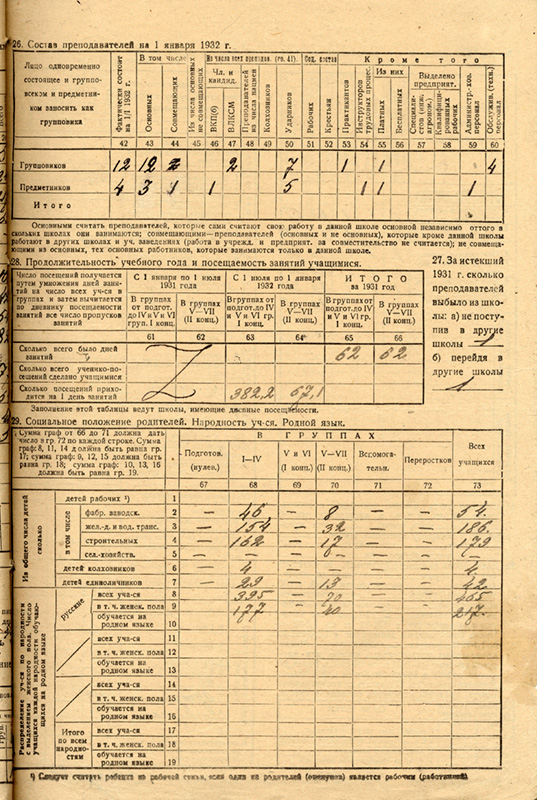 26. Состав преподавателей на 1 января 1932 г.
Лицо одновременно состоящее и групповсеком и предметником заносить как групповика
Фактически состоит на 1/I 1932 г.
В том числе
Основных
Совмещающих
Из числа основных не совмещающих
Из числа всех препода. (гр. 41).
Чл. и кандид.
ВКП(б)
ВЛКСМ
Преподавателей из числа нацмен
Колхозников
Ударников
Соц. состав
Рабочих
Крестьян
Кроме того
Практикантов
Инструкторов трудовых процес.
Из них
Платных
Бесплатных
Выделено предприят.
Администр.-хоз. персонал
Обслужив. (техн.) персонал
42 43 44 45 46 47 48 49 50 51 52 53 54 55 56 57 58 59 60
Групповиков 12 12 2 2 7 1 1 4
Предметников 4 3 1 1 5 1 1 1
Итого
Основными считать преподавателей, которые сами считают свою работу в данной школе основной независимо оттого в
скольких школах они занимаются; совмещающими—преподавателей (основных и не основных), которые кроме данной школы
работают в других школах и уч. заведениях (работа в учрежд. и предприят. за совместительство не считается); не совмеща-
ющими из основных, тех основных работников, которые занимаются только в данной школе.
28. Продолжительность учебного года и посещаемость занятий учащимися.
Число посещений получается
путем умножения дней заня-
тий на число всех уч-ся в
группах и затем вычитается
по дневнику посещаемости
занятий все число пропусков
занятий
С 1 января по 1 июля 1931 года
С 1 июля по 1 января 1932 года
ИТОГО за 1931 год
В группах от подгот. до IV и V и VI груп. I конц.)
В группах V—VII (II конц.)
В группах от подгот. до IV и V и VI гр. I конц.)
В группах V—VII (II конц.)
В группах от подгот. до IV и V и VI гр. I конц.)
В группах V—VII (II конц.)
61 62 63 64 65 66
Сколько всего было дней занятий 62 62
Сколько всего ученико-по-
сещений сделано учащимися
Сколько посещений прихо-
дится на 1 день занятий 382,2 67,1
Заполнение этой таблицы ведут школы, имеющие дневные посещаемости.
27. За истекший
1931 г. сколько
преподавателей
выбыло из шко-
лы: а) не посту-
пив в другие
школы 1
б) перейдя в
другие школы
1
29. Социальное положение родителей. Народность уч-ся. Родной язык.
Сумма граф от 66 до 71 должна дать
число в гр. 72 по каждой строке. Сумма
граф: 8, 11, 14 должна быть равна гр.
17; сумма граф: 9, 12, 15 должна быть
равна гр. 18; сумма гр. 10, 13, 16
должна быть равна гр. 19.
В ГРУППАХ
Подготов. (нулев.)
I—IV
V и VI (I конц.)
V—VII (II конц.)
Вспомога-тельн.
Переростков
Всех учащихся
67 68 69 70 71 72 73
Из общего числа детей сколько
детей рабочих ¹) 1
в том числе
фабр. заводск. 2 — 46 — 8 — — 54.
жел.-д. и вод. транс. 3 — 154 — 32 — — 186.
строительных 4 — 162 — 17 — — 179
сел.-хозяйств. 5 — — — — —
детей колхозников 6 — 4 — — — — 4.
детей единоличников 7 — 29 — 13 — — 42
Распределение уч-ся по народности с выделением женского пола. Число учащихся каждой народности обучающихся на родном языке
русские
всех уча-ся 8 395 — 70 465
в т. ч. женск. пола 9 177 40 217.
обучается на родном языке 10
всех уча-ся 11
в т. ч. женск. пола 12
обучается на родном языке 13
всех уча-ся 14
в т. ч. женск. пола 15
обучается на родном языке 16
Итого по всем народностям
всех уча-ся 17
в т. ч. женск. пола 18
обучается на родном языке 19
¹) Следует считать ребенка из рабочей семьи, если один из родителей (опекунов) является рабочим (работницей)